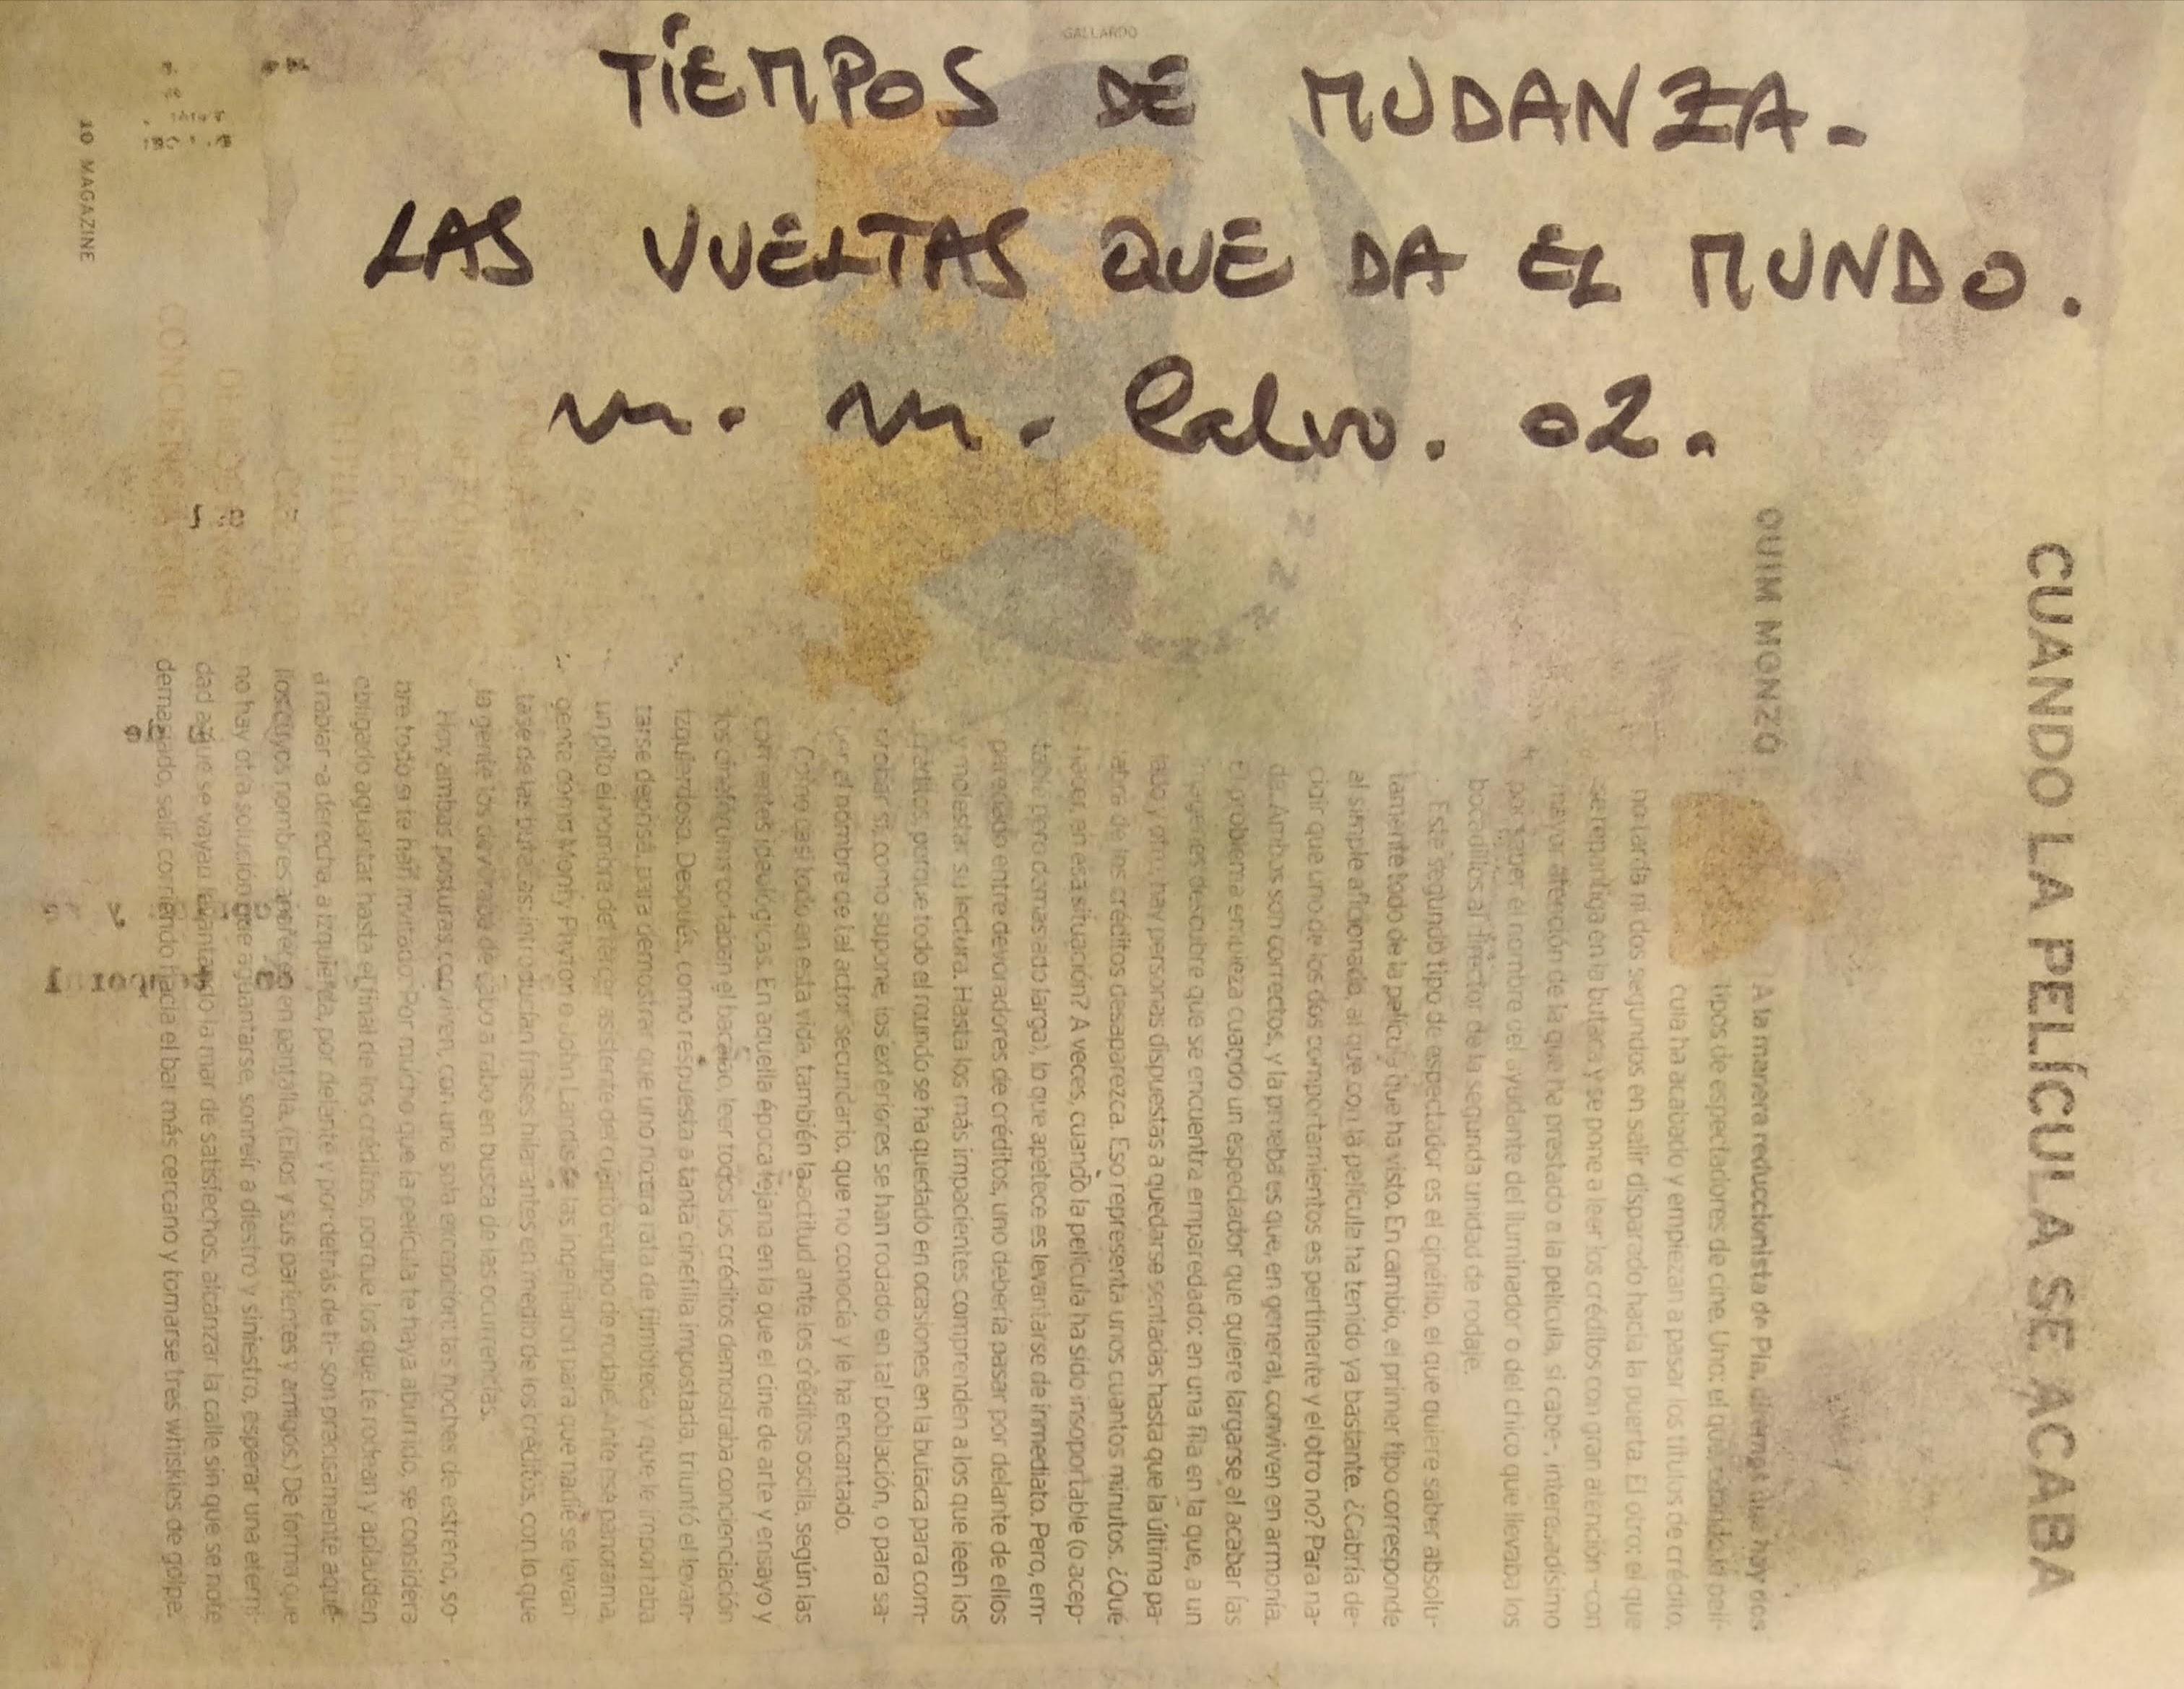 GALLARDO
TIEMPOS DE MUDANZA.
LAS VUELTAS QUE DA EL MUNDO.
m. m. Calvo. 02.
10 MAGAZINE
CUANDO LA PELÍCULA SE ACABA
QUIM MONZÓ
A la manera reduccionista de Pla, diremos que hay dos
tipos de espectadores de cine. Uno: el que, cuando la pelí-
cula ha acabado y empiezan a pasar los títulos de crédito,
no tarda ni dos segundos en salir disparado hacia la puerta. El otro: el que
se repantiga en la butaca y se pone a leer los créditos con gran atención -con
mayor atención de la que ha prestado a la película, si cabe-, interesadísimo
por saber el nombre del ayudante del iluminador o del chico que llevaba los
bocadillos al director de la segunda unidad de rodaje.
Este segundo tipo de espectador es el cinéfilo, el que quiere saber absolu-
tamente todo de la película que ha visto. En cambio, el primer tipo corresponde
al simple aficionado, al que con la película ha tenido ya bastante. ¿Cabría de-
cidir que uno de los dos comportamientos es pertinente y el otro no? Para na-
da. Ambos son correctos, y la prueba es que, en general, conviven en armonía.
El problema empieza cuando un espectador que quiere largarse al acabar las
imágenes descubre que se encuentra emparedado: en una fila en la que, a un
lado y otro, hay personas dispuestas a quedarse sentadas hasta que la última pa-
labra de los créditos desaparezca. Eso representa unos cuantos minutos. ¿Qué
hacer, en esa situación? A veces, cuando la película ha sido insoportable (o acep-
table pero demasiado larga), lo que apetece es levantarse de inmediato. Pero, em-
paredado entre devoradores de créditos, uno debería pasar por delante de ellos
y molestar su lectura. Hasta los más impacientes comprenden a los que leen los
créditos, porque todo el mundo se ha quedado en ocasiones en la butaca para com-
probar si, como supone, los exteriores se han rodado en tal población, o para sa-
ber el nombre de tal actor secundario, que no conocía y le ha encantado.
Como casi todo en esta vida, también la actitud ante los créditos oscila, según las
corrientes ideológicas. En aquella época lejana en la que el cine de arte y ensayo y
los cinefórums cortaban el bacalao, leer todos los créditos demostraba concienciación
izquierdosa. Después, como respuesta a tanta cinefilia impostada, triunfó el levan-
tarse deprisa, para demostrar que uno no era rata de filmoteca y que le importaba
un pito el nombre del tercer asistente del cuarto equipo de rodaje. Ante ese panorama,
gente como Monty Phyton o John Landis se las ingeniaron para que nadie se levan-
tase de las butacas: introducían frases hilarantes en medio de los créditos, con lo que
la gente los devoraba de cabo a rabo en busca de las ocurrencias.
Hoy, ambas posturas conviven, con una sola excepción: las noches de estreno, so-
bre todo si te han invitado. Por mucho que la película te haya aburrido, se considera
obligado aguantar hasta el final de los créditos, porque los que te rodean y aplauden
a rabiar -a derecha, a izquierda, por delante y por detrás de ti- son precisamente aqué-
llos cuyos nombres aparecen en pantalla. (Ellos y sus parientes y amigos.) De forma que
no hay otra solución que aguantarse, sonreír a diestro y siniestro, esperar una eterni-
dad a que se vayan levantando la mar de satisfechos, alcanzar la calle sin que se note
demasiado, salir corriendo hacia el bar más cercano y tomarse tres whiskies de golpe.